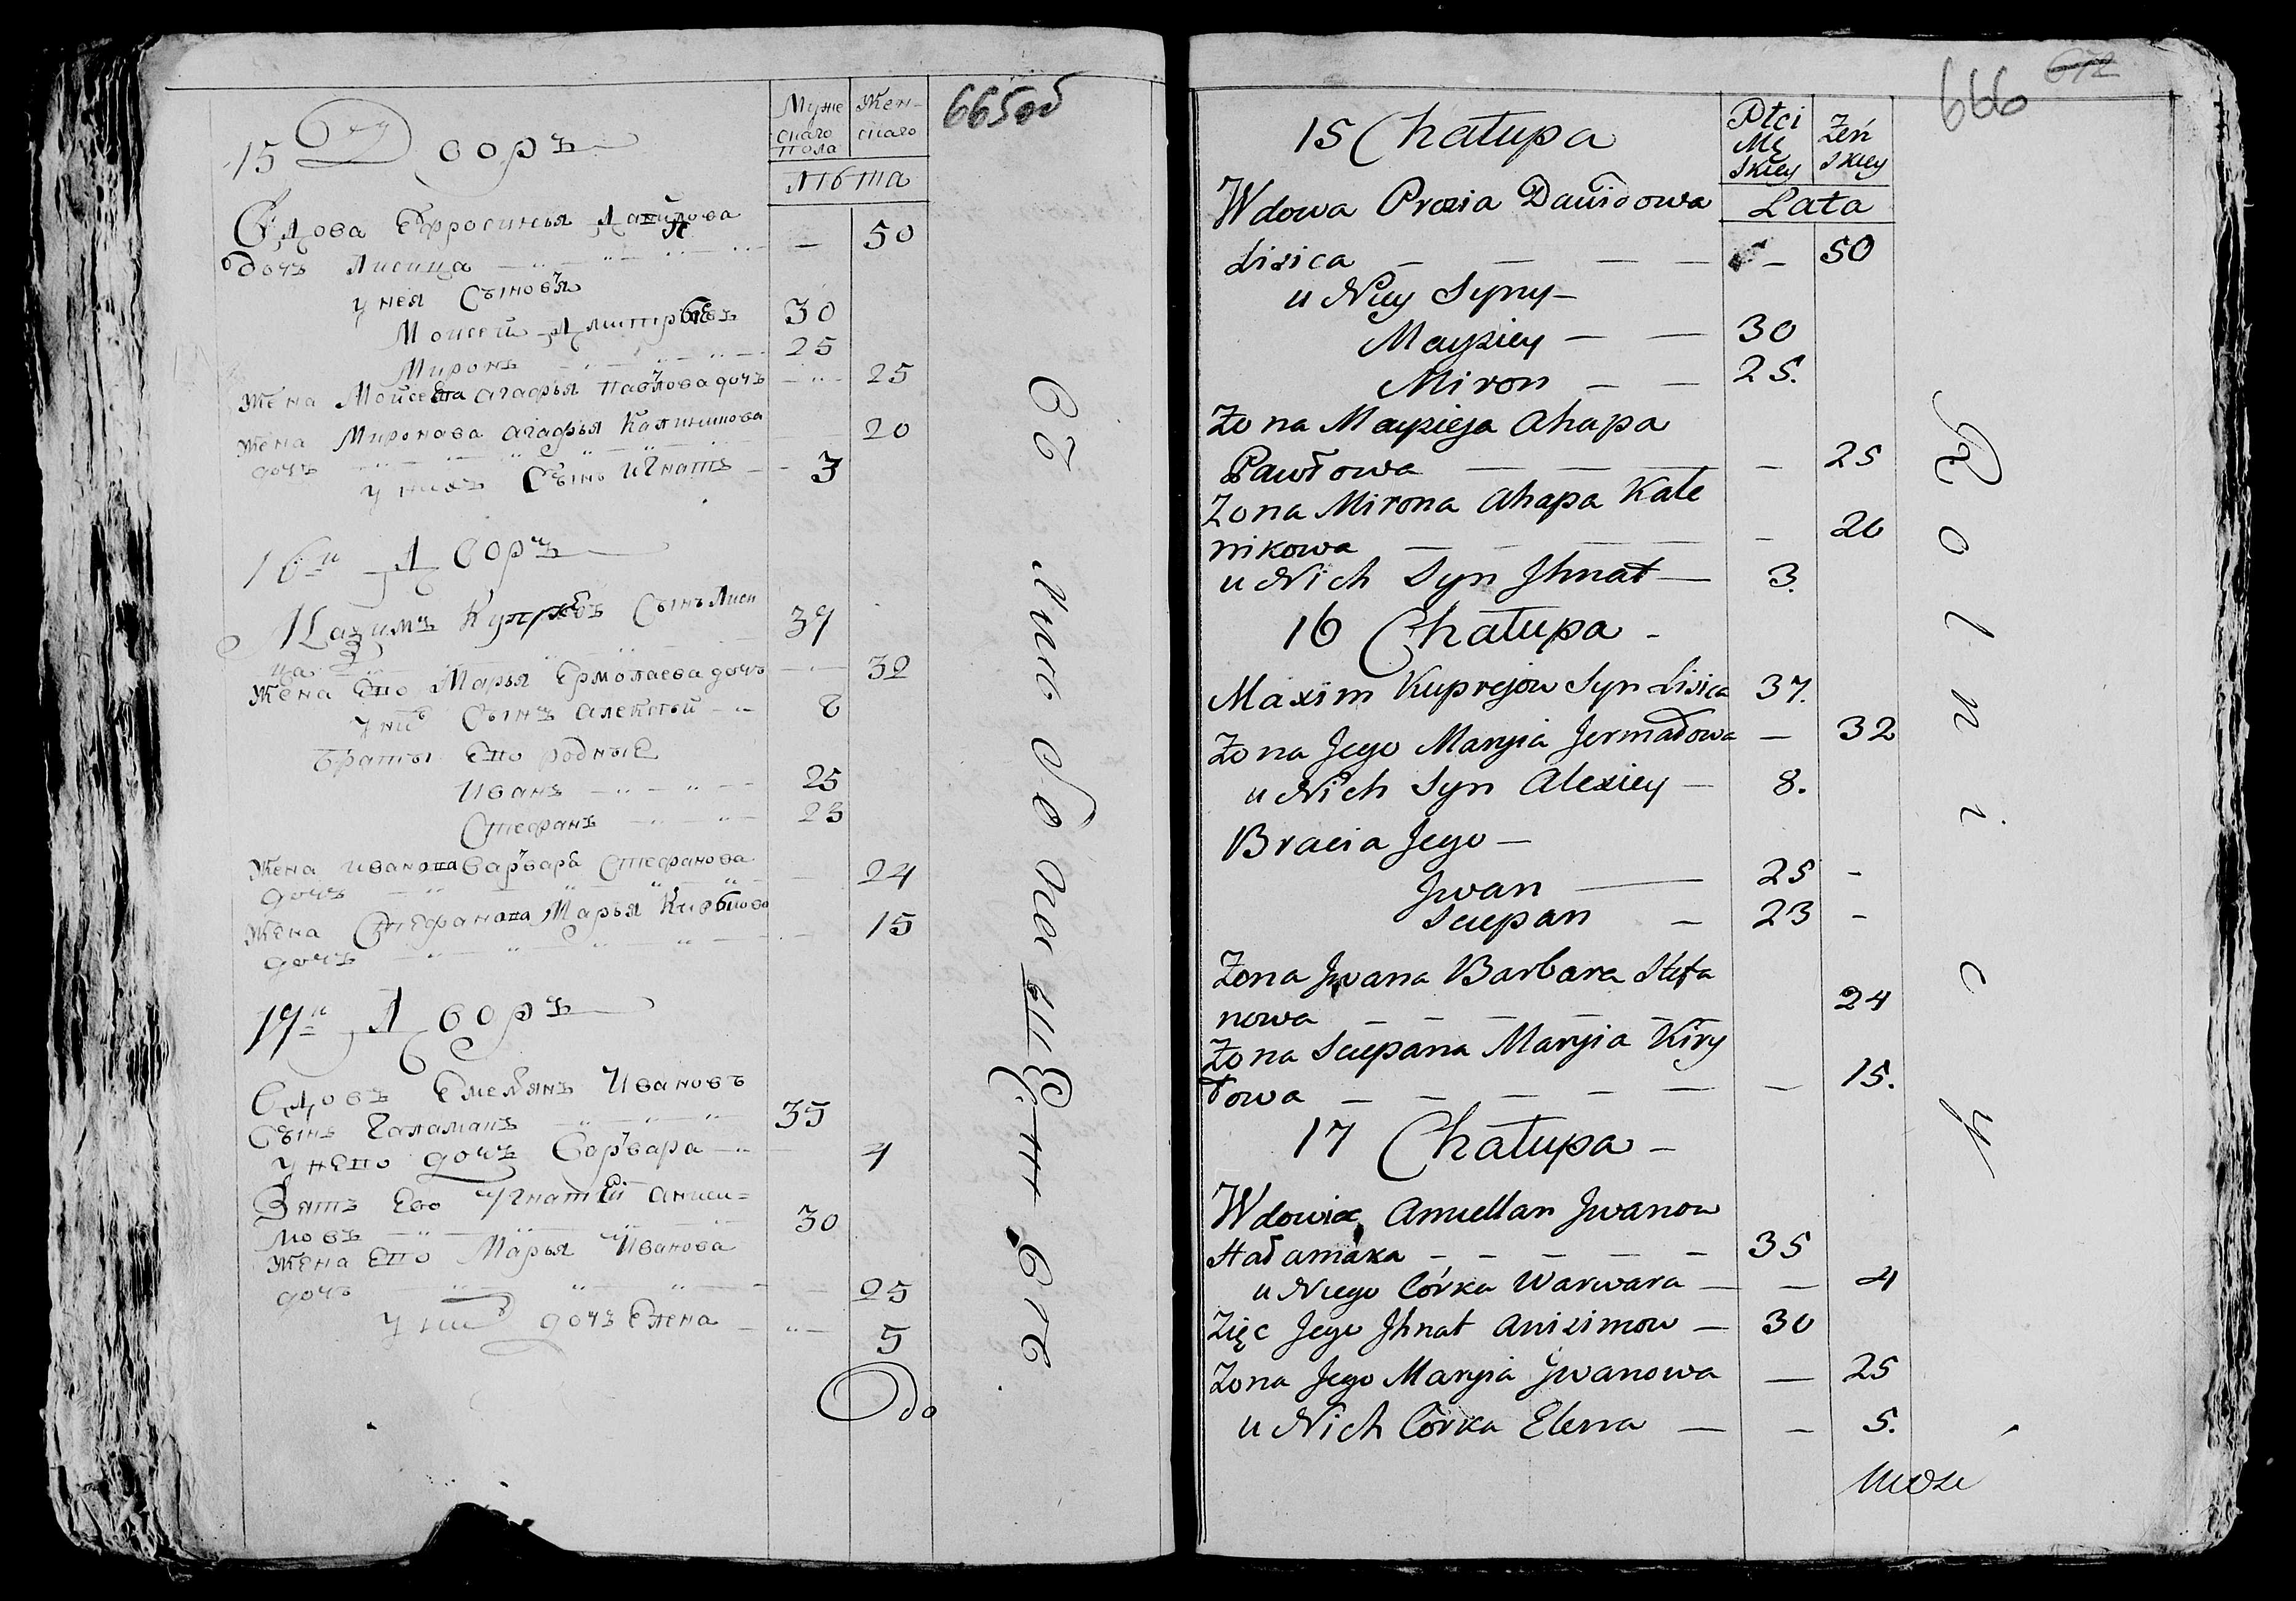 665об
Муже
скаго
пола
Жен-
скаго
Лѣта
15й Дворъ
Вдова Ефросинья
дочь Лисица — 50
у нея Сыновья
Моисей Дмитрѣевъ 30
Миронъ 25
Жена Мойсеева агафья Павлова дочь 25
Жена Миронова агафья Калиникова
дочь 20
у нихъ Сынъ Игнатъ 3
16й Дворъ
Максимъ Купрѣевъ Сынъ Лиси
ца 37
Жена Его Марья Ермолаева дочь 32
у ни Сынъ алексѣй 8
братья Его родные
Иванъ 25
Стефанъ 23
Жена ивана варвара Стефанова
дочь 24
Жена Стефана Марья Кирилова
дочь 15
17й Дворъ
Вдовъ Емельянъ Ивановъ
Сынъ Галамака 35
у него дочь Варвара 4
Зять Ево Игнатей аниси-
мовъ 30
Жена Его Марья Иванова
дочь 25
у ни дочь Елена 5
Одо
666
672
Płci
Mę
skiey
Żeń
skiey
Lata
15 Chałupa
Wdowa Prozia Dawidowa
Lisica — — — — — 50
u Niey Syny —
Mayziey — — 30
Miron — — 25.
Żona Mayzieja Ahapa
Pawłowa — — — — 25
Żona Mirona Ahapa Kale
nikowa — — — — — 20
u Nich Syn Jhnat — 3.
16 Chałupa —
Maxim Kuprejow Syn Lisica 37.
Żona Jego Maryia Jermałowa — 32
u Nich Syn Alexiey — 8.
Bracia Jego —
Jwan — 25 -
Sciepan — 23 -
Żona Jwana Barbara Stefa
nowa — — — — — 24
Żona Sciepana Maryia Kiry
łowa — — — — — — 15.
17 Chałupa —
Wdowiec Amiellan Jwanow
Hałamaka — — — — — 35
u Niego Córka Warwara — — 4
Zięc Jego Jhnat Anisimow — 30
Żona Jego Maryia Jwanowa — 25
u Nich Córka Elena — — 5.
Rolnicy